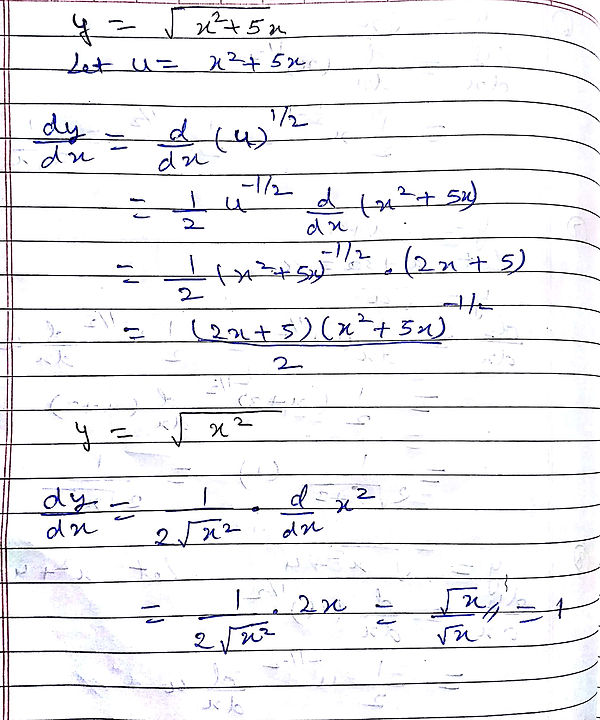 y = √(x²+5x)
Let u = x²+5x
dy/dx = d/dx (u)^1/2
= 1/2 u^-1/2 d/dx (x²+5x)
= 1/2 (x²+5x)^-1/2 . (2x+5)
= (2x+5)(x²+5x)^-1/2 / 2
y = √x²
dy/dx = 1/(2√x²) . d/dx x²
= 1/(2√x²) . 2x = √x/√x // = 1